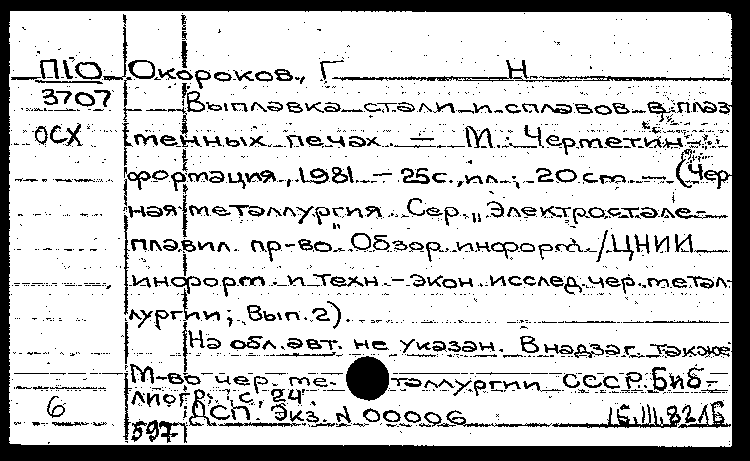 П10 Окороков., Г Н
3707 Выплавка стали и сплавов в плаз
ОСХ менных печах. — М.: Черметин-
формация, 1981. — 25с., ил.; 20см. — (Чер
ная металлургия. Сер. „Электростале-
плавил. пр-во" Обзор. информ. /ЦНИИ
информ. и техн.-экон. исслед. чер. метал-
лургии; Вып. 2).
На обл. авт. не указан. В надзаг. также
М-во чер. ме- таллургии СССР. Биб-
лиогр.: с. 24
6 ДСП. Экз. N 00006
597